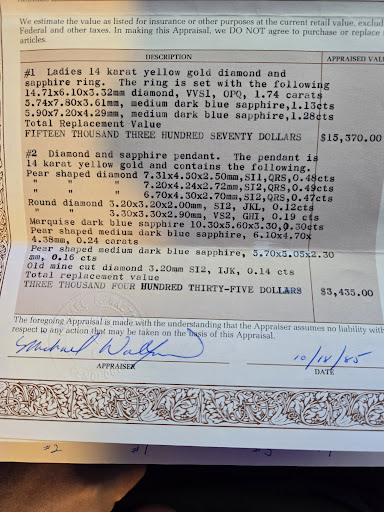 We estimate the value as listed for insurance or other purposes at the current retail value, exclud
Federal and other taxes. In making this Appraisal, we DO NOT agree to purchase or replace
articles.
DESCRIPTION APPRAISED VALU
#1 Ladies 14 karat yellow gold diamond and
sapphire ring. The ring is set with the following
14.71x6.10x3.32mm diamond, VVS1, OPQ, 1.74 carats
5.74x7.80x3.61mm, medium dark blue sapphire,1.13cts
5.90x7.20x4.29mm, medium dark blue sapphire,1.28cts
Total Replacement Value
FIFTEEN THOUSAND THREE HUNDRED SEVENTY DOLLARS $15,370.00
#2 Diamond and sapphire pendant. The pendant is
14 karat yellow gold and contains the following.
Pear shaped diamond 7.31x4.50x2.50mm,SI1,QRS,0.48cts
" " " 7.20x4.24x2.72mm,SI2,QRS,0.49cts
" " " 6.70x4.30x2.70mm,SI2,QRS,0.47cts
Round diamond 3.20x3.20x2.00mm, SI2, JKL, 0.12cts
" " 3.30x3.30x2.90mm, VS2, GHI, 0.19 cts
Marquise dark blue sapphire 10.30x5.60x3.30,0.30cts
Pear shaped medium dark blue sapphire, 6.10x4.70x
4.38mm, 0.24 carats
Pear shaped medium dark blue sapphire, 5.70x5.05x2.30
mm, 0.16 cts
Old mine cut diamond 3.20mm SI2, IJK, 0.14 cts
Total replacement value
THREE THOUSAND FOUR HUNDRED THIRTY-FIVE DOLLARS $3,435.00
The foregoing Appraisal is made with the understanding that the Appraiser assumes no liability with
respect to any action that may be taken on the basis of this Appraisal.
Michael 10/18/85
APPRAISER DATE
#2 #1